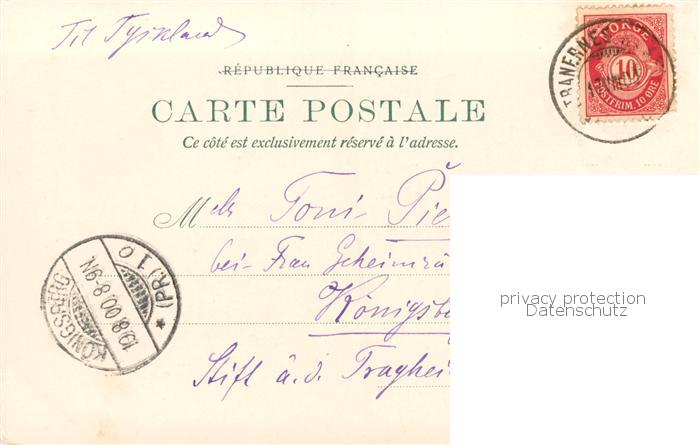 Til Tyskland
NORGE
10
POSTFRIM. 10 ØRE
RÉPUBLIQUE FRANÇAISE
CARTE POSTALE
Ce côté est exclusivement réservé à l'adresse.
Mlle Toni Pie
bei Frau Geheimrä
Königsb
Stift a. d. Traghei
KÖNIGSBERG
19.8.00.8-9N
(PR.) 1 o
privacy protection
Datenschutz